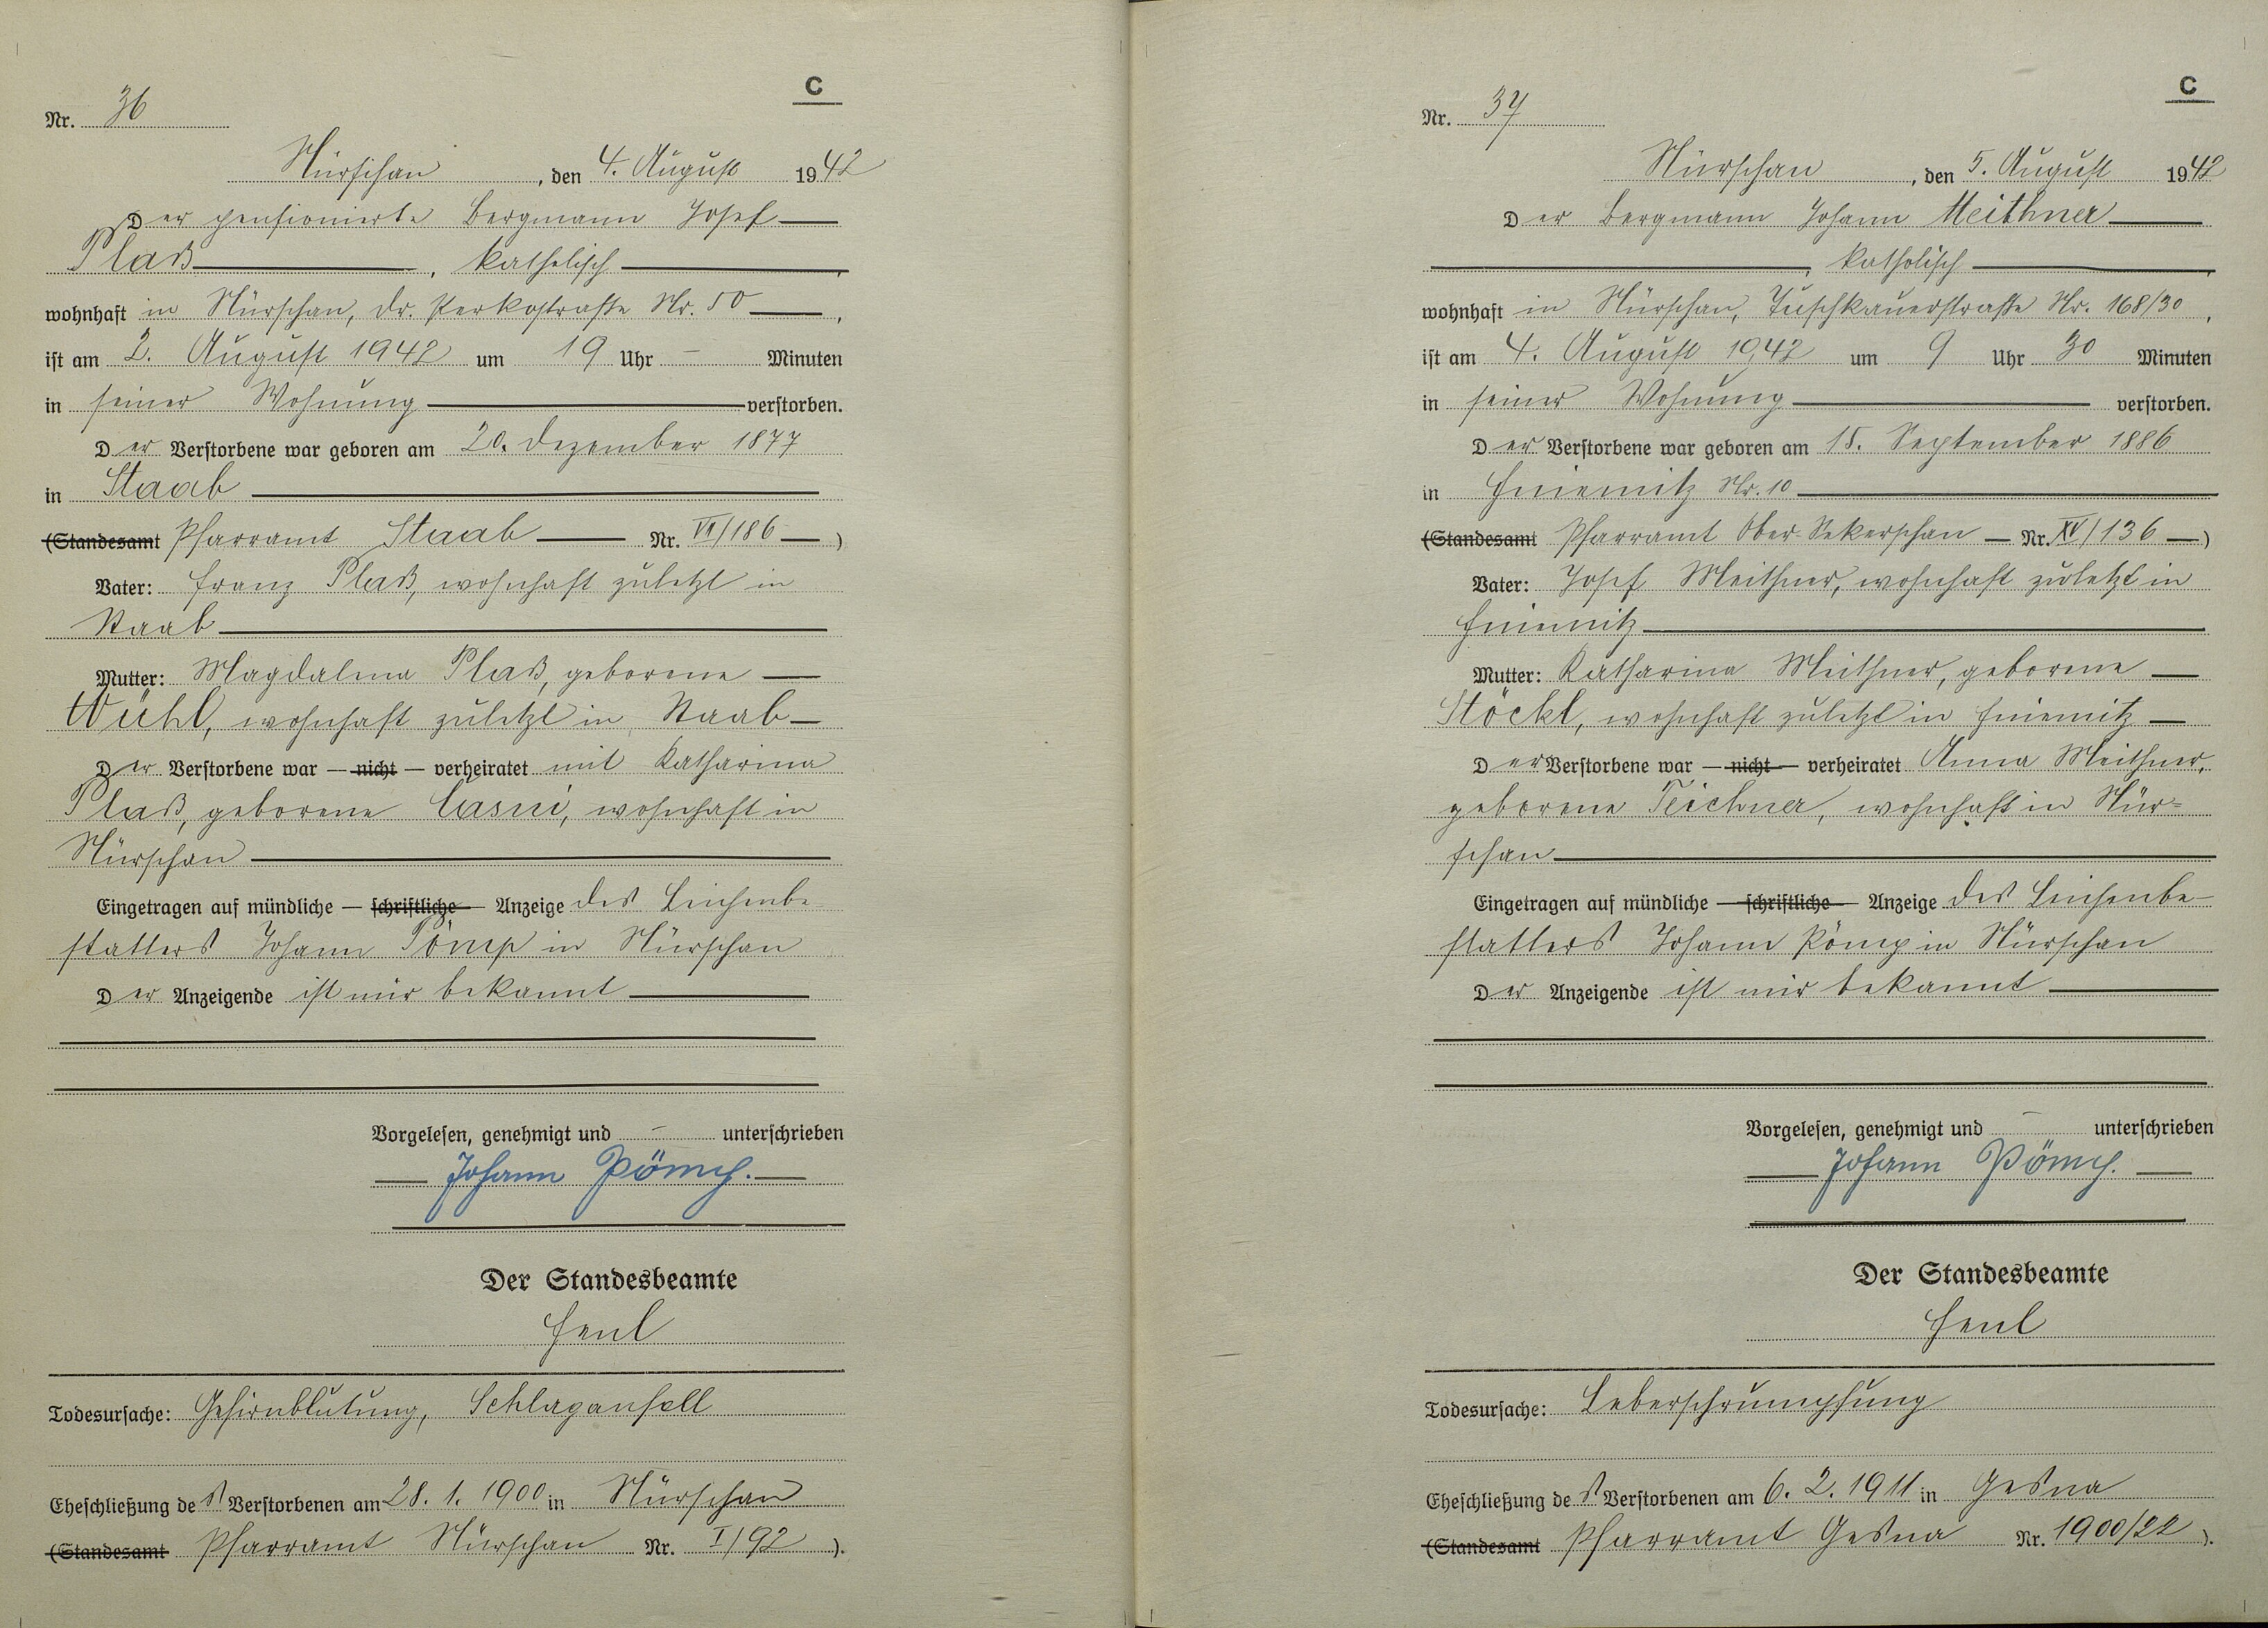 C
Nr. 36
Nürschan, den 4. August 1942
Der pensionierte Bergmann Josef
Plaß, katholisch,
wohnhaft in Nürschan, Dr. Perkostraße Nr. 50,
ist am 2. August 1942 um 19 Uhr – Minuten
in seiner Wohnung verstorben.
Der Verstorbene war geboren am 20. Dezember 1877
in Staab
(Standesamt Pfarramt Staab — Nr. VI/186 —)
Vater: Franz Plaß, wohnhaft zuletzt in
Staab
Mutter: Magdalena Plaß, geborene —
Wühl, wohnhaft zuletzt in Staab —
Der Verstorbene war — nicht — verheiratet mit Katharina
Plaß, geborene Casni, wohnhaft in
Nürschan
Eingetragen auf mündliche — schriftliche — Anzeige des Leichenbe-
statters Johann Pömp in Nürschan
Der Anzeigende ist mir bekannt
Vorgelesen, genehmigt und – unterschrieben
Johann Pömp.
Der Standesbeamte
Henl
Todesursache: Gehirnblutung, Schlaganfall
Eheschließung des Verstorbenen am 28. 1. 1900 in Nürschan
(Standesamt Pfarramt Nürschan Nr. I/92).
C
Nr. 37
Nürschan, den 5. August 1942
Der Bergmann Johann Meithner
, katholisch,
wohnhaft in Nürschan, Tuschkauerstraße Nr. 168/30,
ist am 4. August 1942 um 9 Uhr 30 Minuten
in seiner Wohnung verstorben.
Der Verstorbene war geboren am 15. September 1886
in Hniemitz Nr. 10
(Standesamt Pfarramt Ober-Sekerschan — Nr. XV/136 —)
Vater: Josef Meithner, wohnhaft zuletzt in
Hniemitz
Mutter: Katharina Meithner, geborene —
Stöckl, wohnhaft zuletzt in Hniemitz —
Der Verstorbene war — nicht — verheiratet Anna Meithner,
geborene Teichner, wohnhaft in Nür=
schan
Eingetragen auf mündliche — schriftliche — Anzeige des Leichenbe-
statters Johann Pömp in Nürschan
Der Anzeigende ist mir bekannt
Vorgelesen, genehmigt und – unterschrieben
Johann Pömp.
Der Standesbeamte
Henl
Todesursache: Leberschrumpfung
Eheschließung des Verstorbenen am 6. 2. 1911 in Gesna
(Standesamt Pfarramt Gesna Nr. 1900/22).